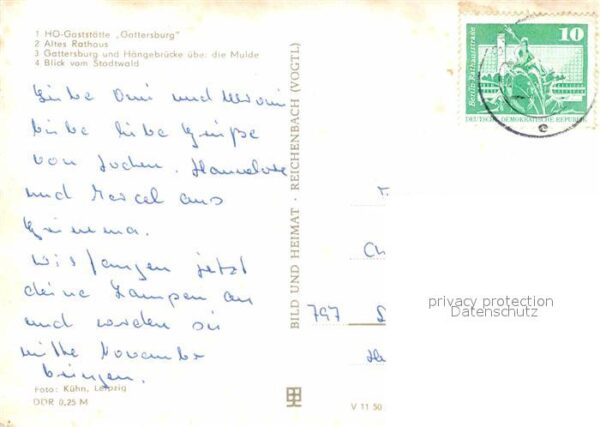 1 HO-Gaststätte „Gattersburg"
2 Altes Rathaus
3 Gattersburg und Hängebrücke über die Mulde
4 Blick vom Stadtwald
Liebe Omi und
liebe Grüße
von Jochen, Hannelore
und Marcel aus
Grimma.
Wir fangen jetzt
deine Lampen an
und werden sie
mitte November
bringen.
Foto: Kühn, Leipzig
DDR 0,25 M
BILD UND HEIMAT · REICHENBACH (VOGTL)
V 11 50
10
Berlin-Rathausstraße
DEUTSCHE DEMOKRATISCHE REPUBLIK
797
privacy protection
Datenschutz